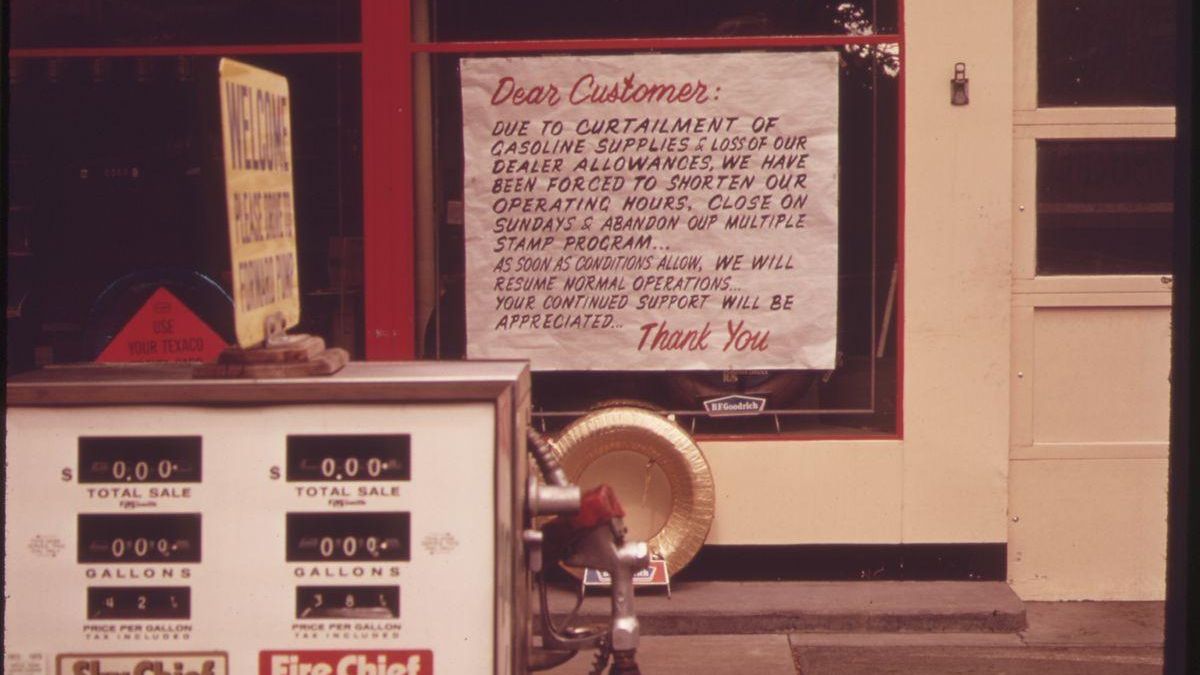 Dear Customer:
DUE TO CURTAILMENT OF
GASOLINE SUPPLIES & LOSS OF OUR
DEALER ALLOWANCES, WE HAVE
BEEN FORCED TO SHORTEN OUR
OPERATING HOURS, CLOSE ON
SUNDAYS & ABANDON OUR MULTIPLE
STAMP PROGRAM...
AS SOON AS CONDITIONS ALLOW, WE WILL
RESUME NORMAL OPERATIONS...
YOUR CONTINUED SUPPORT WILL BE
APPRECIATED...
Thank You
WELCOME
PLEASE DRIVE TO
FORWARD PUMP
USE
YOUR TEXACO
B.F.Goodrich
$ 0.00
TOTAL SALE
$ 0.00
TOTAL SALE
000
GALLONS
000
GALLONS
42
PRICE PER GALLON
TAX INCLUDED
38
PRICE PER GALLON
TAX INCLUDED
Sky Chief
Fire Chief